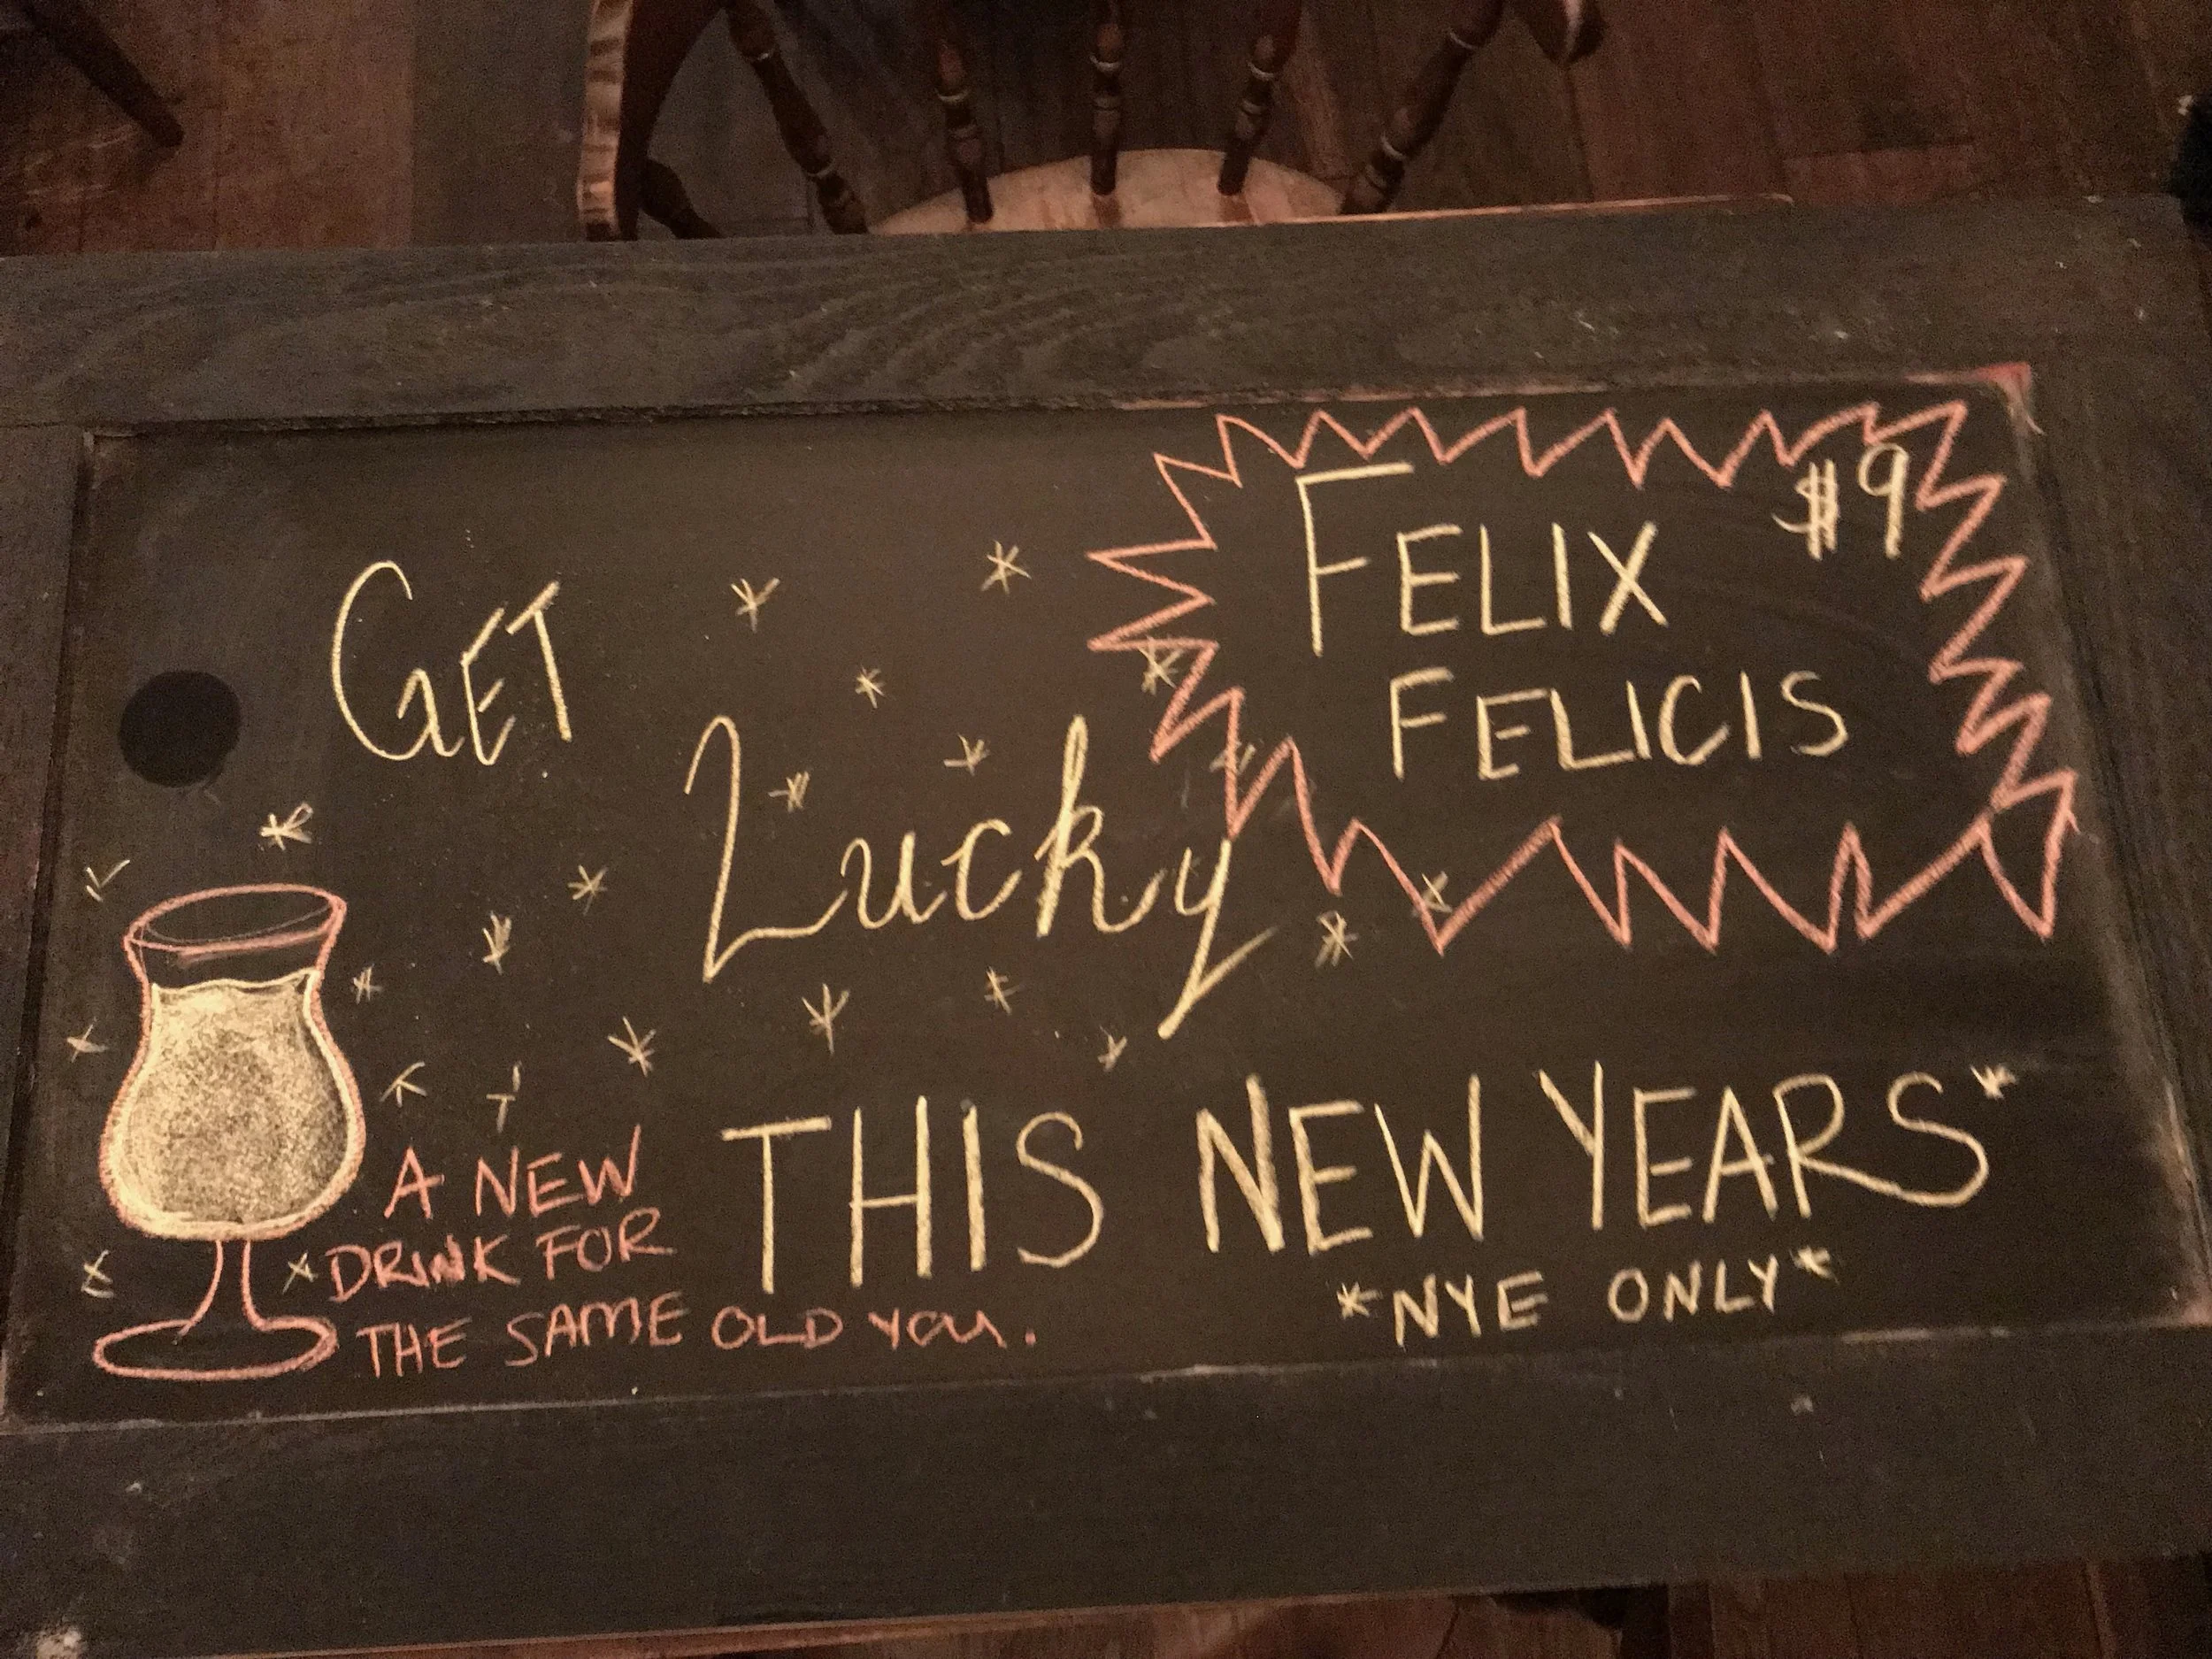 GET
Lucky
THIS NEW YEARS*
*NYE ONLY*
FELIX
FELICIS
$9
A NEW
DRINK FOR
THE SAME OLD YOU.